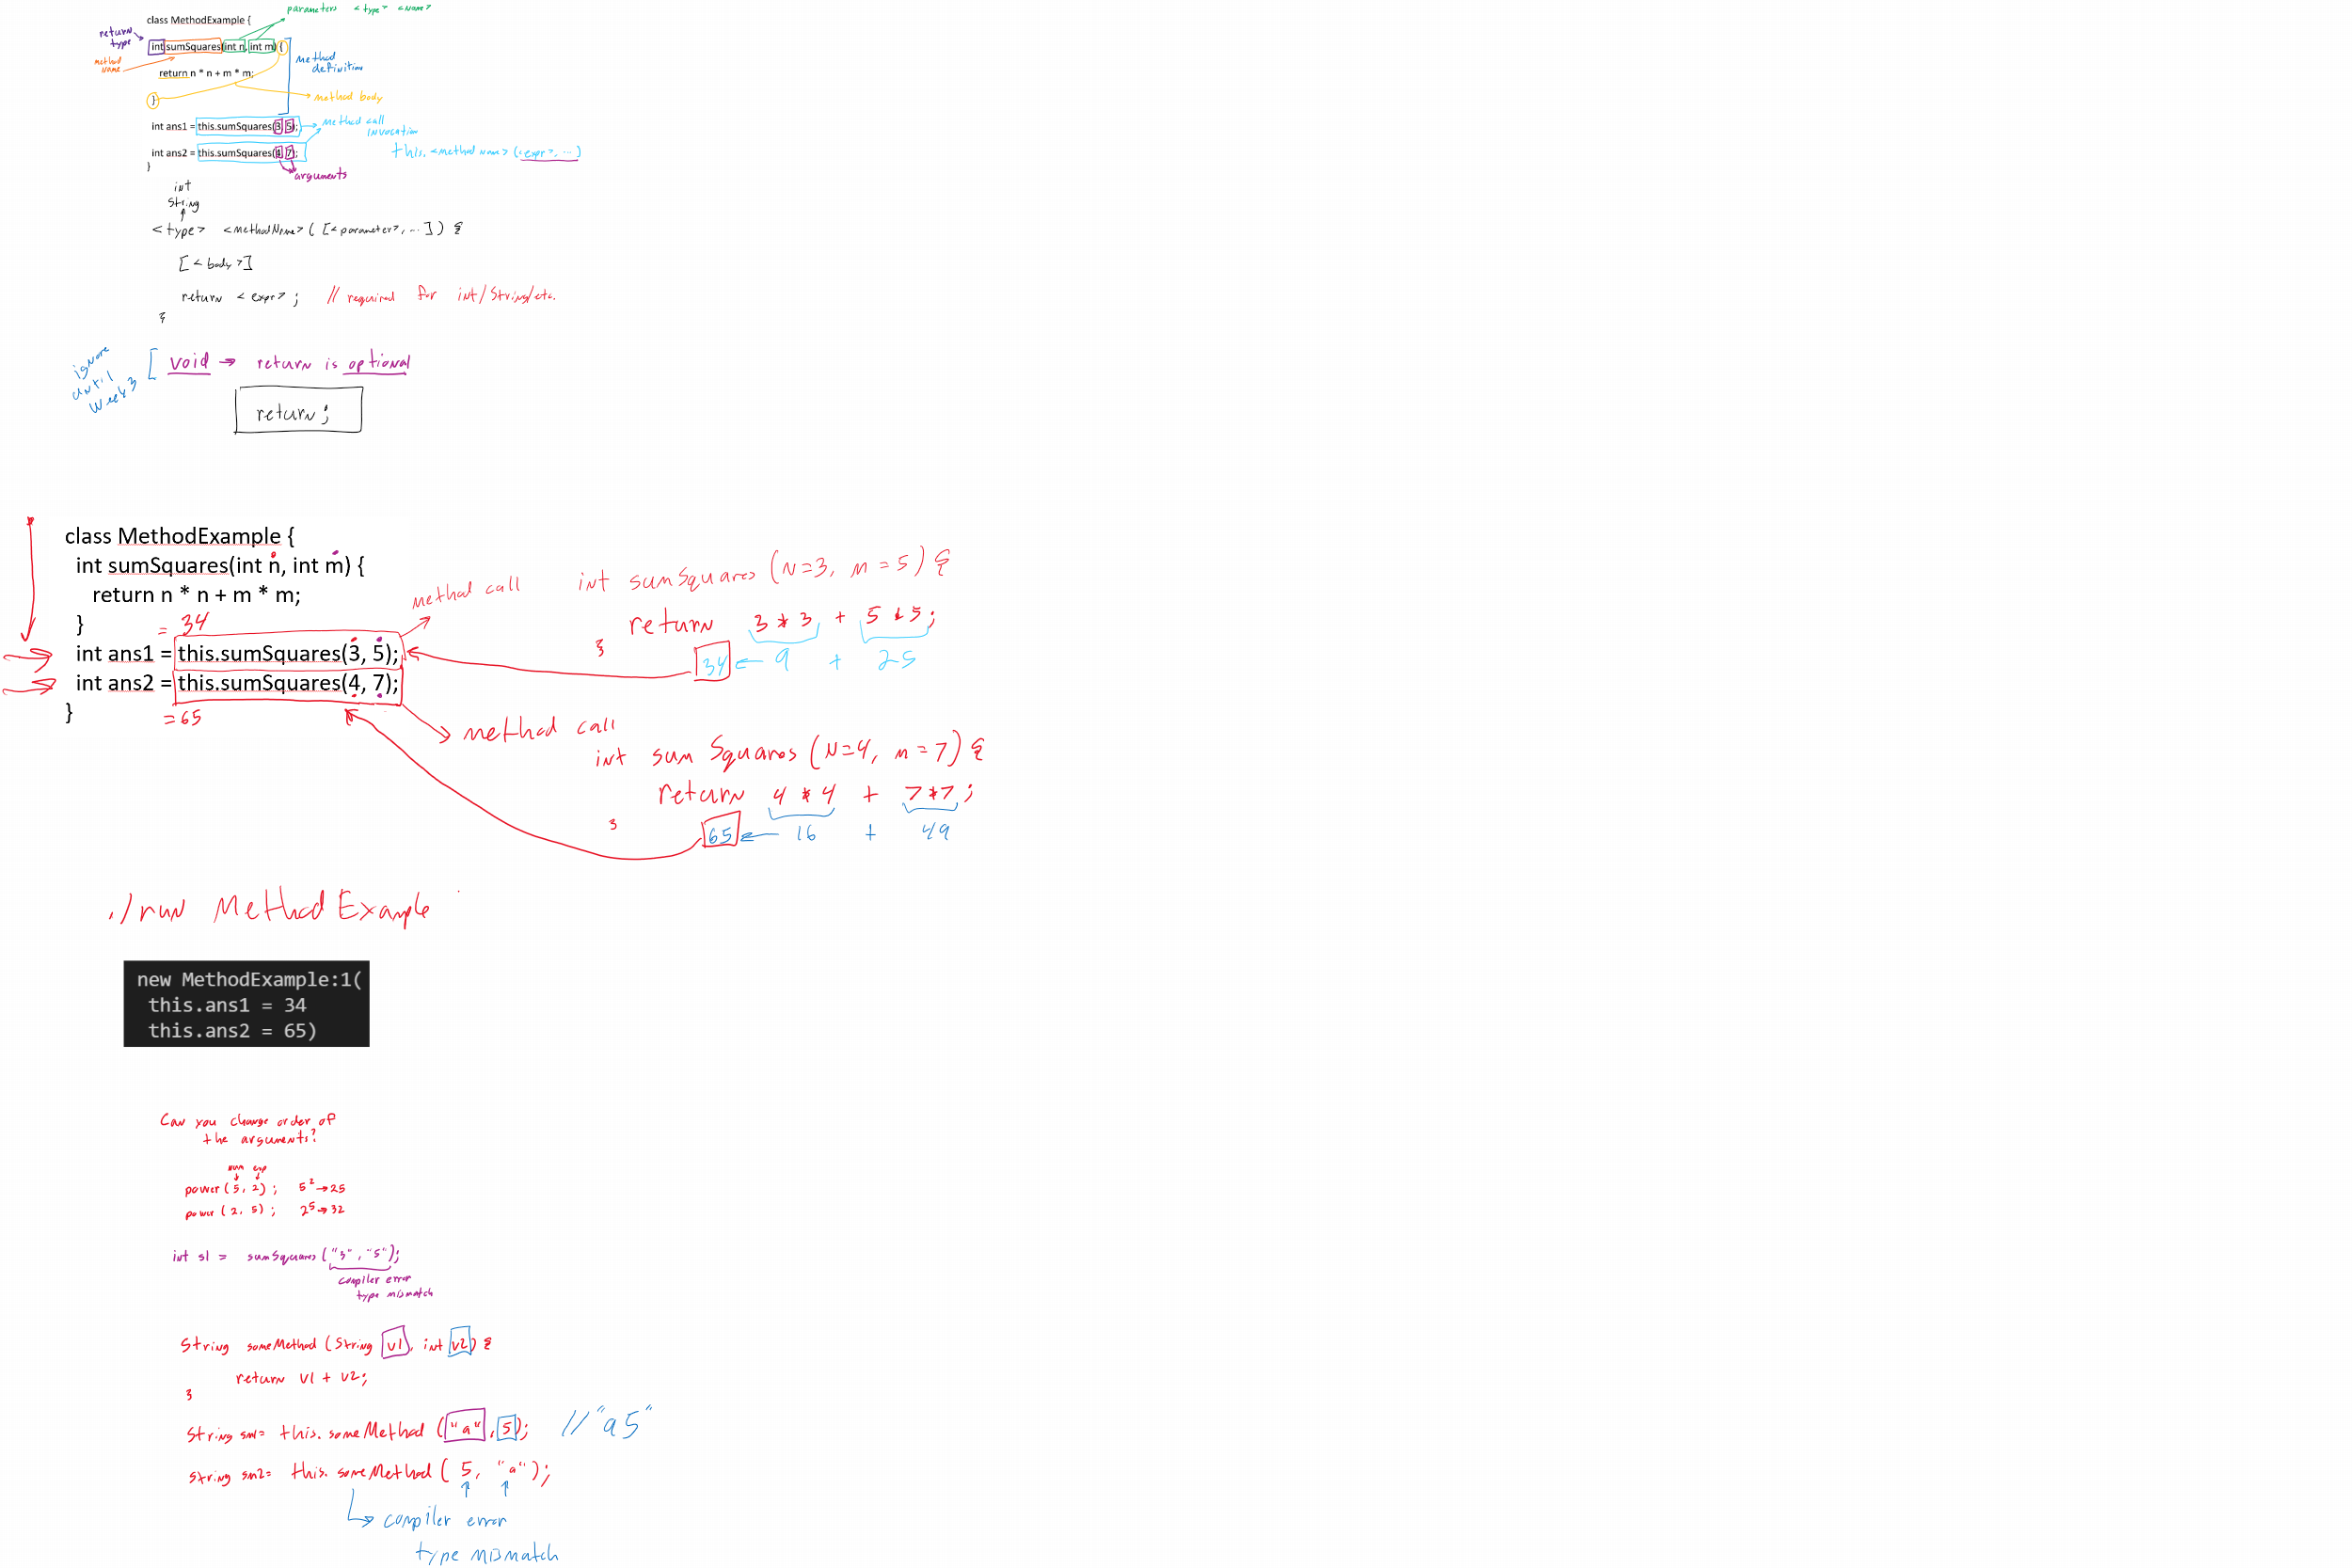 parameters <type> <name>
class MethodExample {
return type
int sumSquares(int n, int m) {
method name
method definition
return n * n + m * m;
}
method body
int ans1 = this.sumSquares(3, 5);
method call
invocation
int ans2 = this.sumSquares(4, 7);
this.<methodName>(<expr>, ...)
}
arguments
int
String
<type> <methodName>([<parameter>, ...]) {
[<body>]
return <expr>; // required for int/String/etc.
}
ignore until week 3
[ void → return is optional
return;
class MethodExample {
int sumSquares(int n, int m) {
return n * n + m * m;
}
= 34
int ans1 = this.sumSquares(3, 5);
int ans2 = this.sumSquares(4, 7);
}
= 65
method call
int sumSquares (n=3, m = 5) {
return 3 * 3 + 5 * 5;
}
34 ← 9 + 25
method call
int sumSquares (n=4, m = 7) {
return 4 * 4 + 7*7;
}
65 ← 16 + 49
./run MethodExample
new MethodExample:1(
this.ans1 = 34
this.ans2 = 65)
Can you change order of
the arguments?
num exp
power(5, 2); 5² → 25
power(2, 5); 2⁵ → 32
int s1 = sumSquares("3", "5");
compiler error
type mismatch
String someMethod (String v1, int v2) {
return v1 + v2;
}
String sm1= this.someMethod ("a", 5); // "a5"
String sm2= this.someMethod ( 5, "a");
compiler error
type mismatch